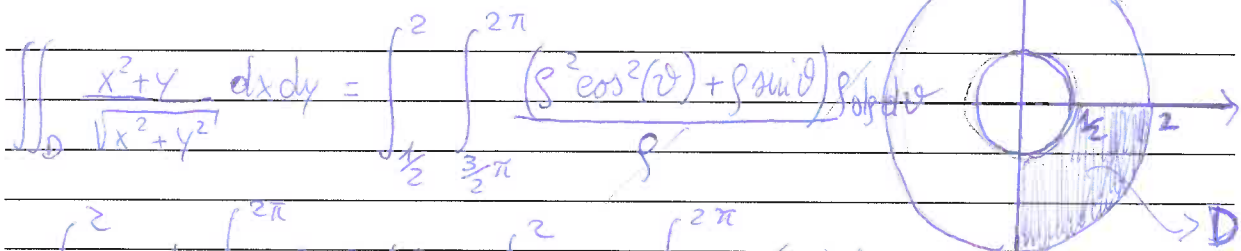 ∬_D (x²+y)/√(x²+y²) dxdy = ∫_{1/2}^{2} ∫_{3/2 π}^{2π} (ρ²cos²(ϑ)+ρ sinϑ)ρ dρdϑ / ρ
1/2 2
D
∫^{2} ∫^{2π} ∫^{2} ∫^{2π}